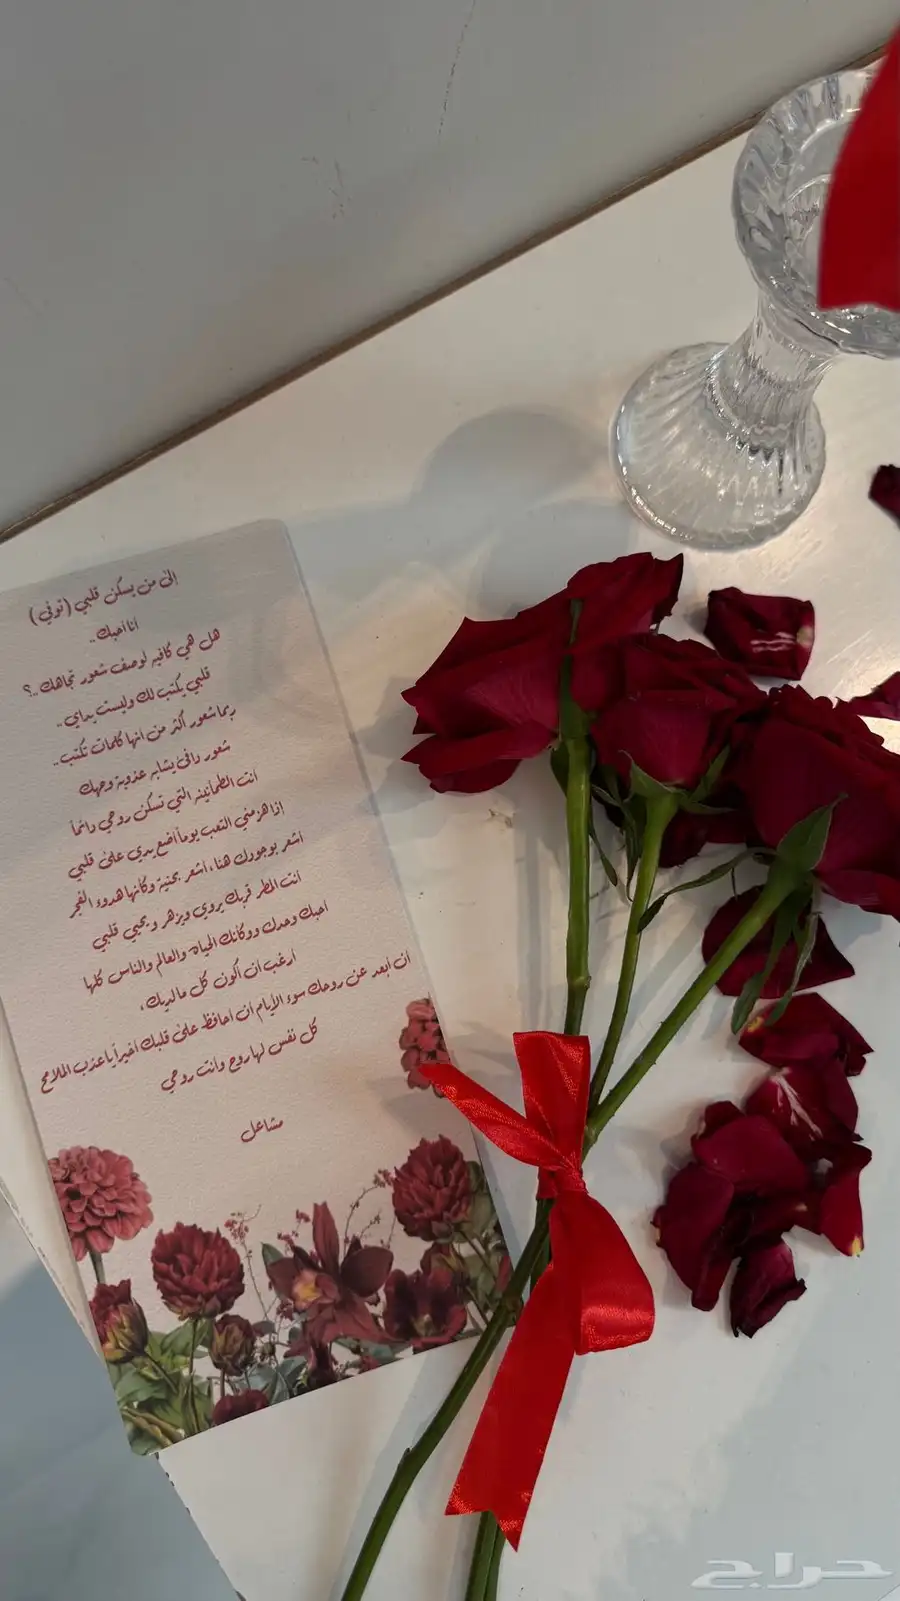 إلى من يسكن قلبي (توفي)
أنا أحبك..
هل هي كافيه لوصف شعور تجاهك..؟
قلبي يكتب لك وليست يداي..
ربما شعور أكثر من انها كلمات تكتب..
شعور دافئ يشابه عذوبة وجهك
أنت الطمأنينه التي تسكن روحي دائماً
إذا هزمني التعب يوماً أضع يدي على قلبي
أشعر بوجودك هنا، أشعر بحنية وكأنها هدوء الفجر
أنت المطر قربك يروي ويزهر ويحيي قلبي
أحبك وحدك ووكأنك الحياة والعالم والناس كلها
ارغب ان أكون كل مالديك،
أن ابعد عن روحك سوء الأيام ان احافظ على قلبك اخيراً ياعذب الملامح
كل نفس لها روح وانت روحي
مشاعل
حراج